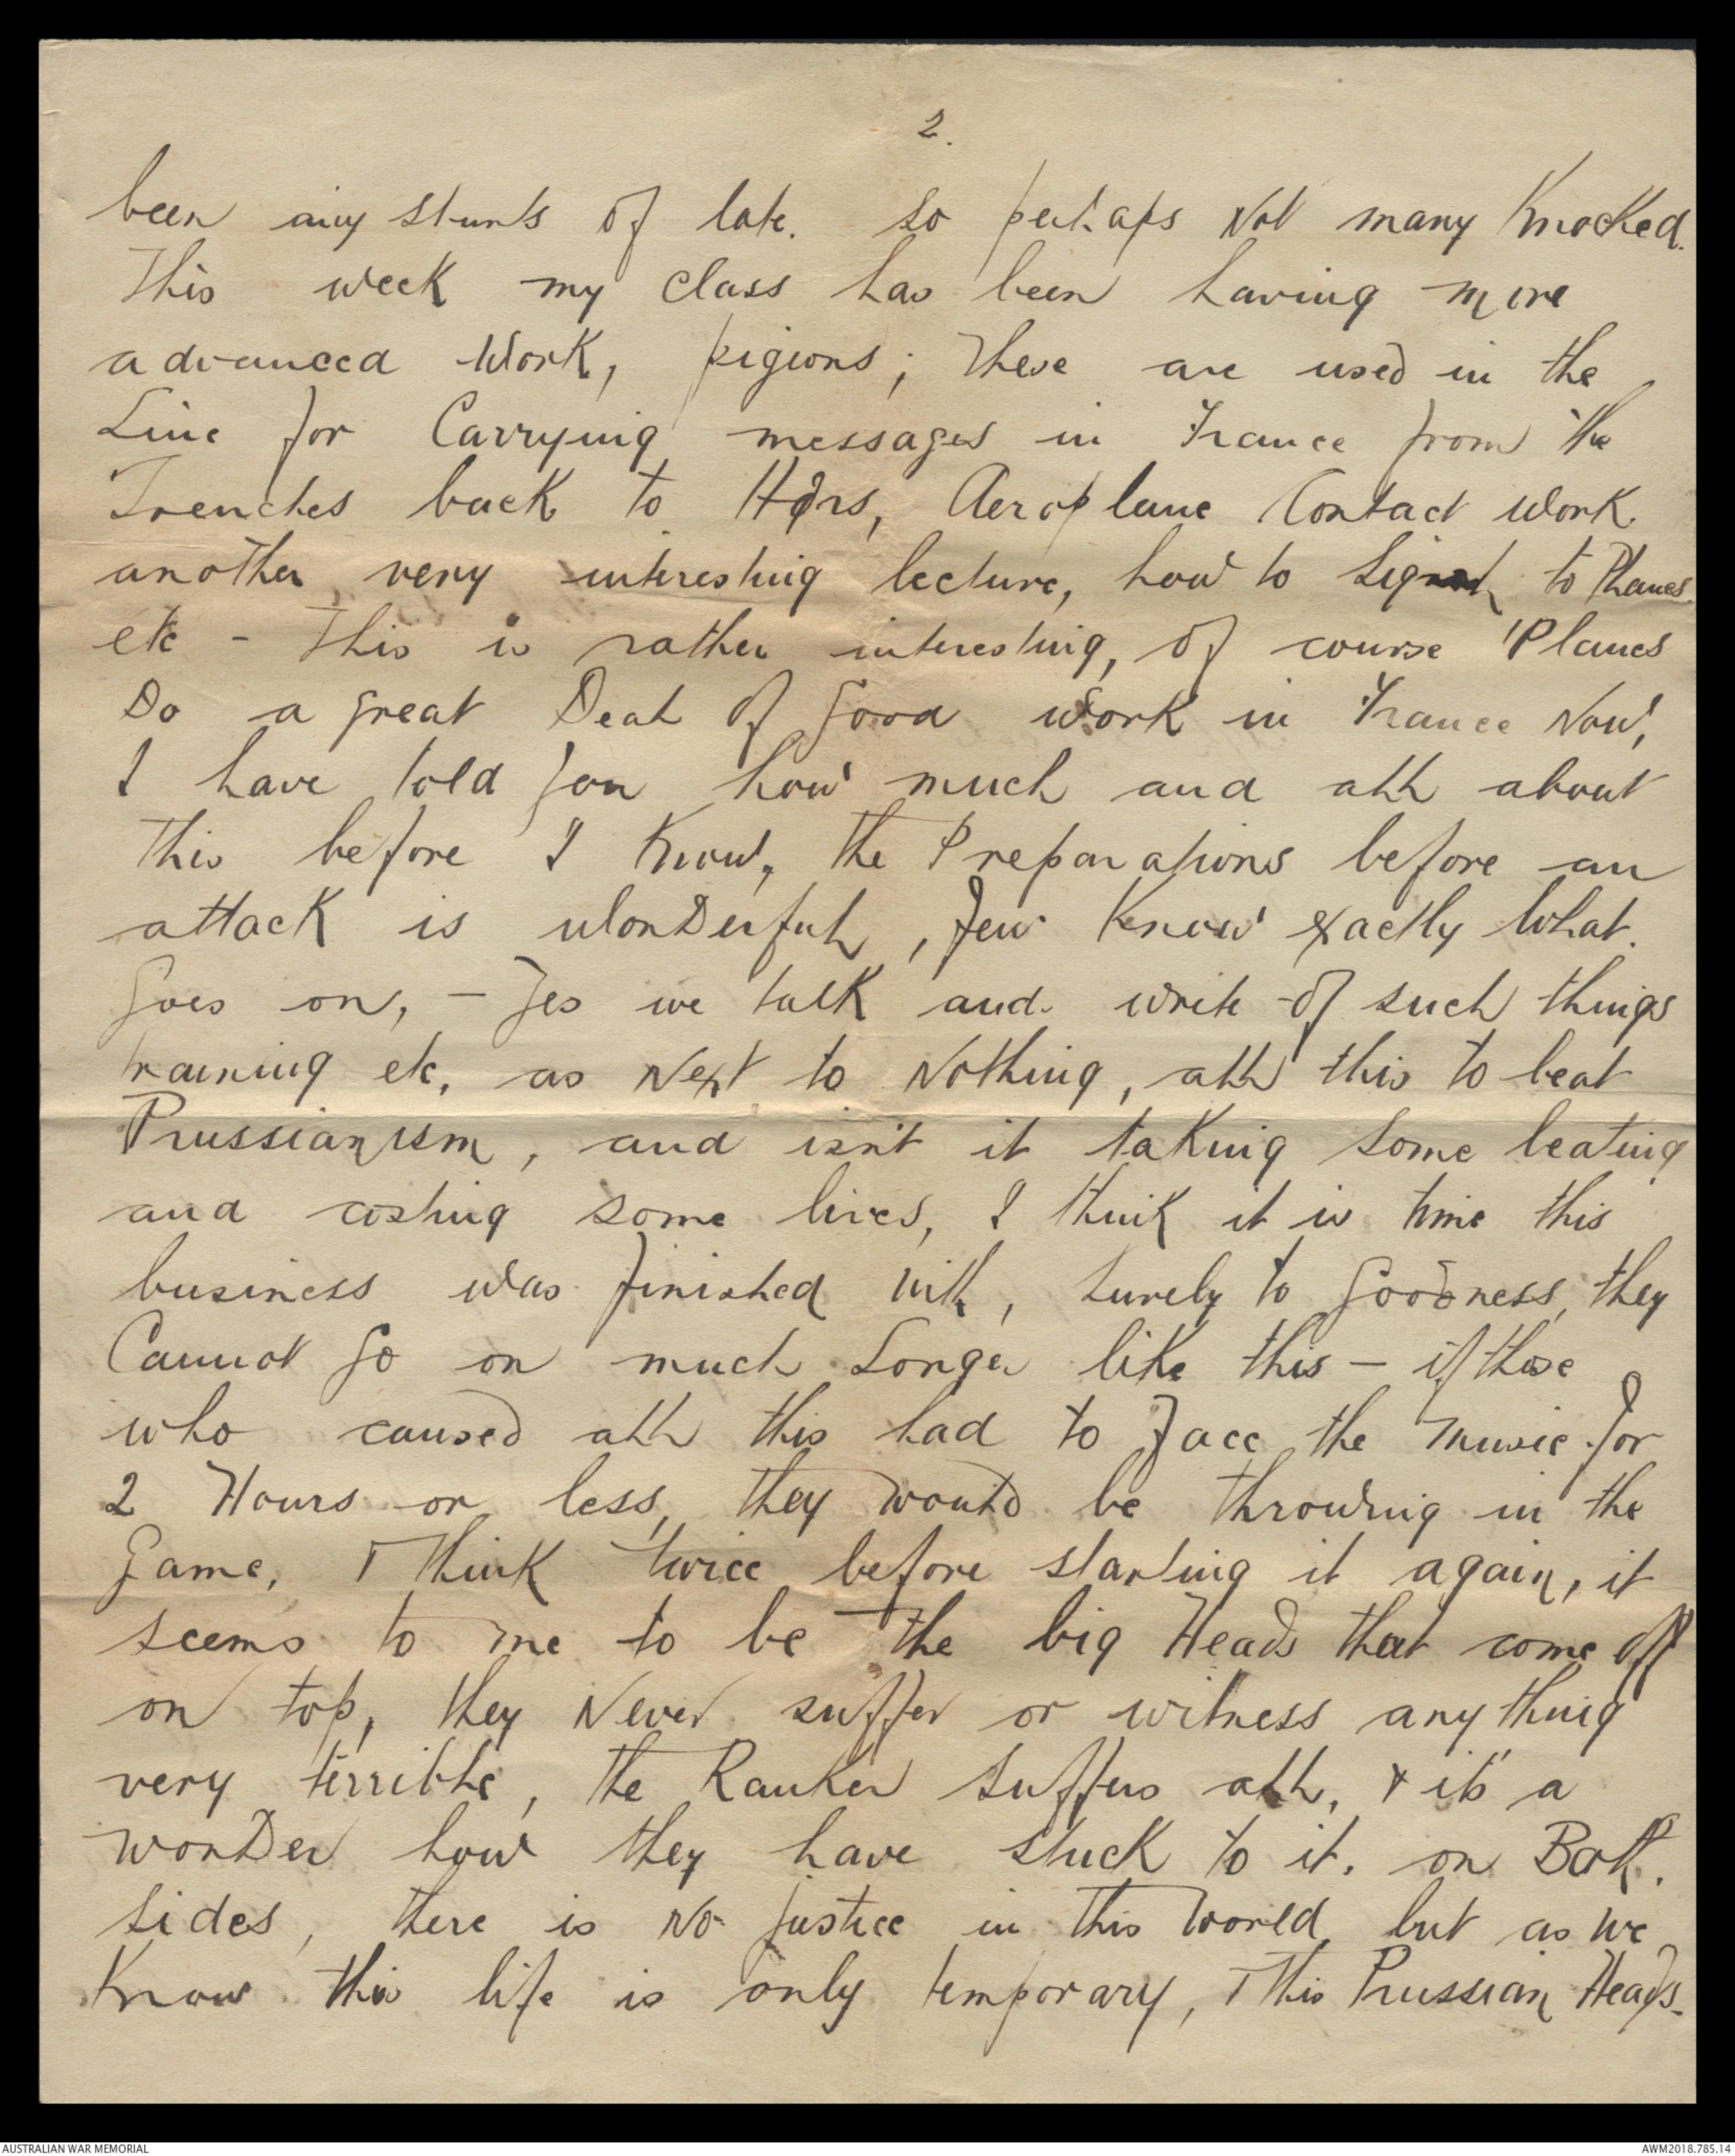 2.
been any stunts of late. so perhaps Not many Knocked.
This week my class has been having more
advanced Work, pigions; These are used in the
Line for Carrying messages in France from the
Trenches back to Hqrs, Aeroplane Contact work.
another very interesting lecture, how to Signal to Planes.
etc - This is rather interesting, of course 'Planes
Do a great Deal of Good work in France Now,
I have told you how much and all about
This before I Know, the Preparations before an
attack is WonDerful, Few Know exactly What.
Goes on, - Yes we talk and write of such things
training etc, as Next to Nothing, all this to beat
Prussianism, and isn't it taking Some beating
and costing some lives, I think it is time this
business was finished with, Surely to Goodness, they
Cannot Go on much Longer like this - if those
who caused all this had to Face the music for
2 Hours or less, they would be throwing in the
Game, & Think twice before starting it again, it
seems to me to be the big Heads that come off
on top, they Never suffer or witness anything
very terrible, the Ranker Suffers all, & its a
wonDer how they have stuck to it. on Both.
sides, there is No justice in this World, but as we
Know this life is only temporary, & this Prussian Heads.
AUSTRALIAN WAR MEMORIAL
AWM2018.785.14